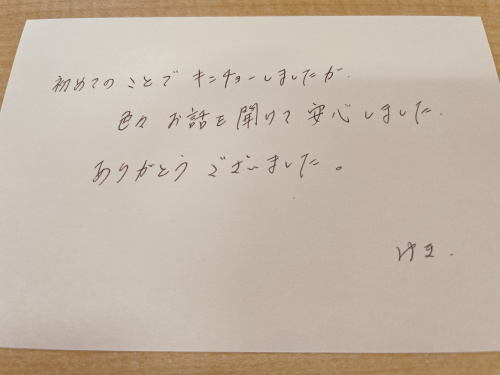 初めてのことで キンチョーしましたが.
色々 お話も聞けて 安心しました.
ありがとうございました。
けま.